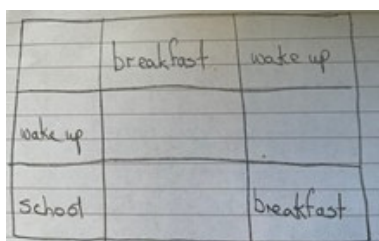 breakfast wake up
wake up
school breakfast